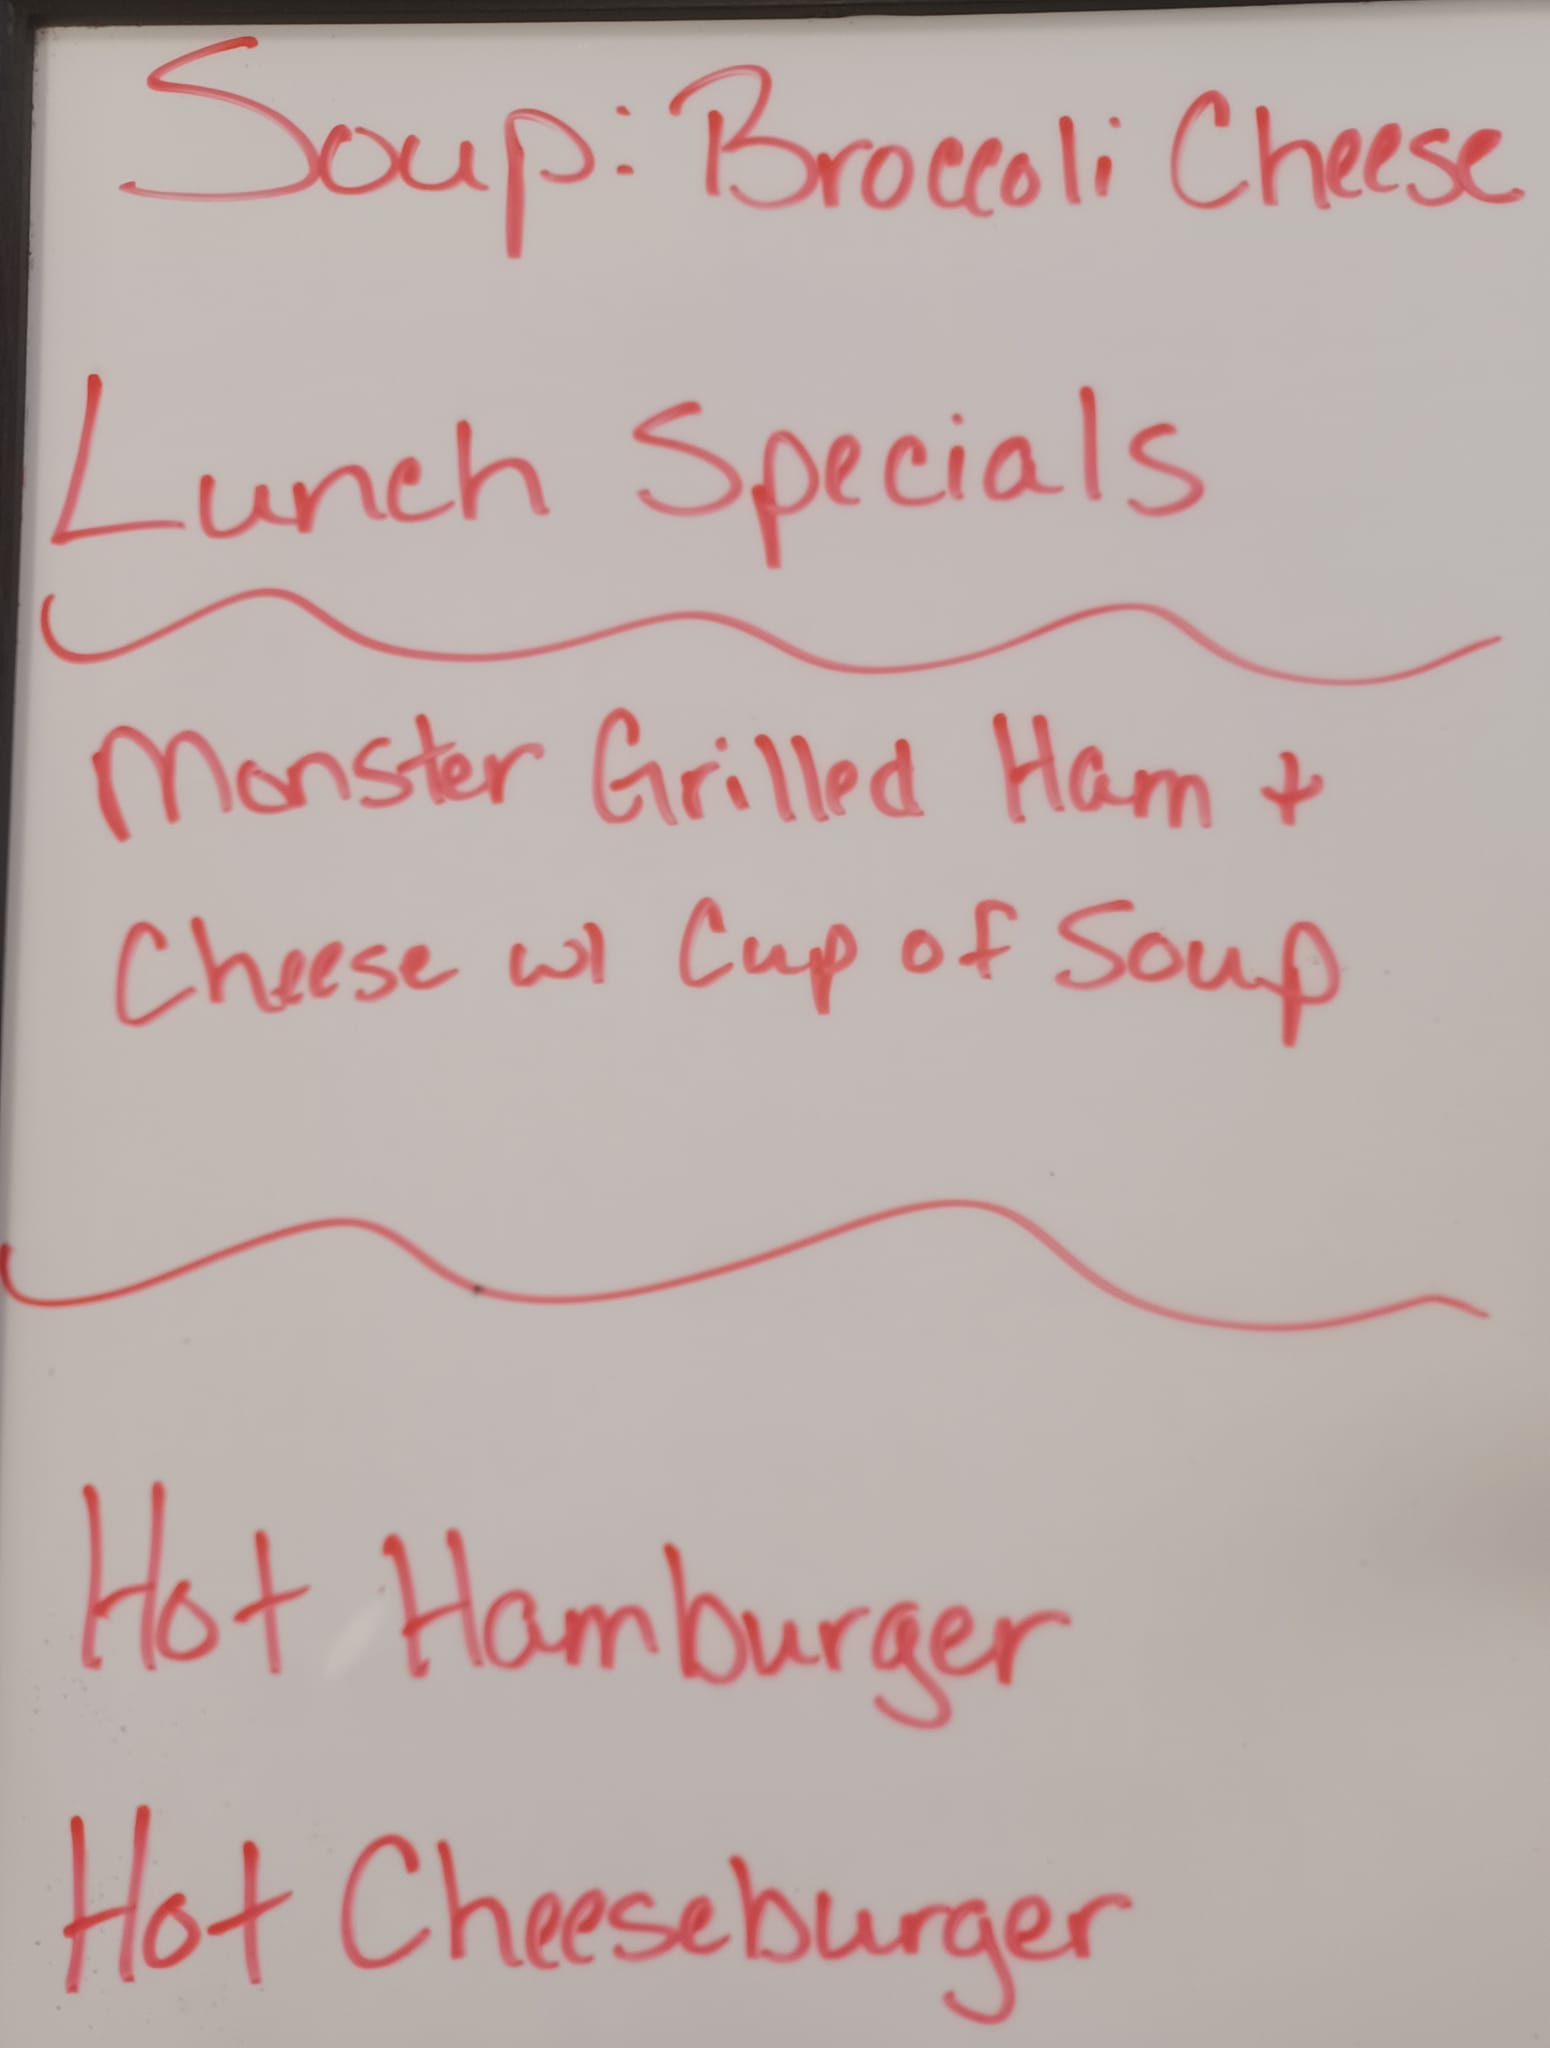 Soup: Broccoli Cheese
Lunch Specials
Monster Grilled Ham +
Cheese w/ Cup of Soup
Hot Hamburger
Hot Cheeseburger